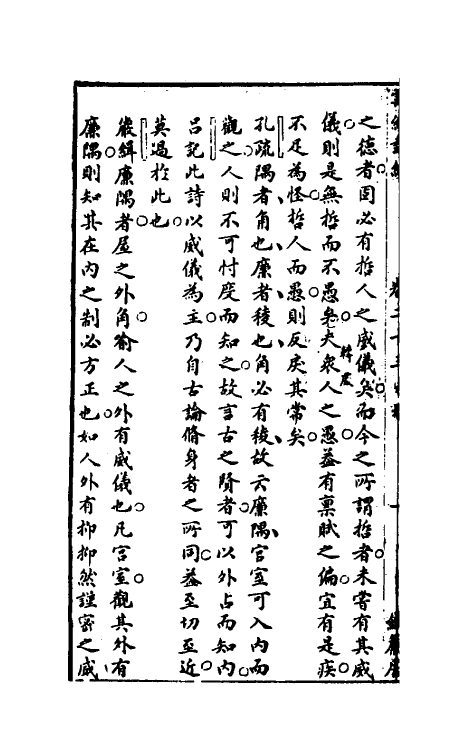 之德者固必有哲人之威儀矣而今之所謂哲者未嘗有其威
儀則是無哲而不愚矣夫衆人之愚葢有稟賦之偏宜有是疾
不足為怪哲人而愚則反戾其常矣
孔疏隅者角也廉者稜也角必有稜故云廉隅宫室可入内而
觀之人則不可忖度而知之故言古之賢者可以外占而知内
吕記此詩以威儀為主乃自古論脩身者之所同葢至切至近
莫過於此也
嚴緝廉隅者屋之外角喻人之外有威儀也凡宫室觀其外有
廉隅則知其在内之制必方正也如人外有抑抑然謹密之威